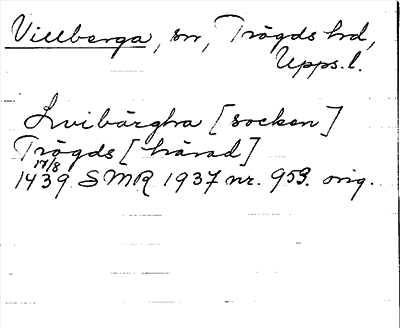 Villberga, sn, Trögds hd,
Upps.l.
Hvibärgha [socken]
Trögds [härad]
17/8
1439 SMR 1937 nr. 953. orig.